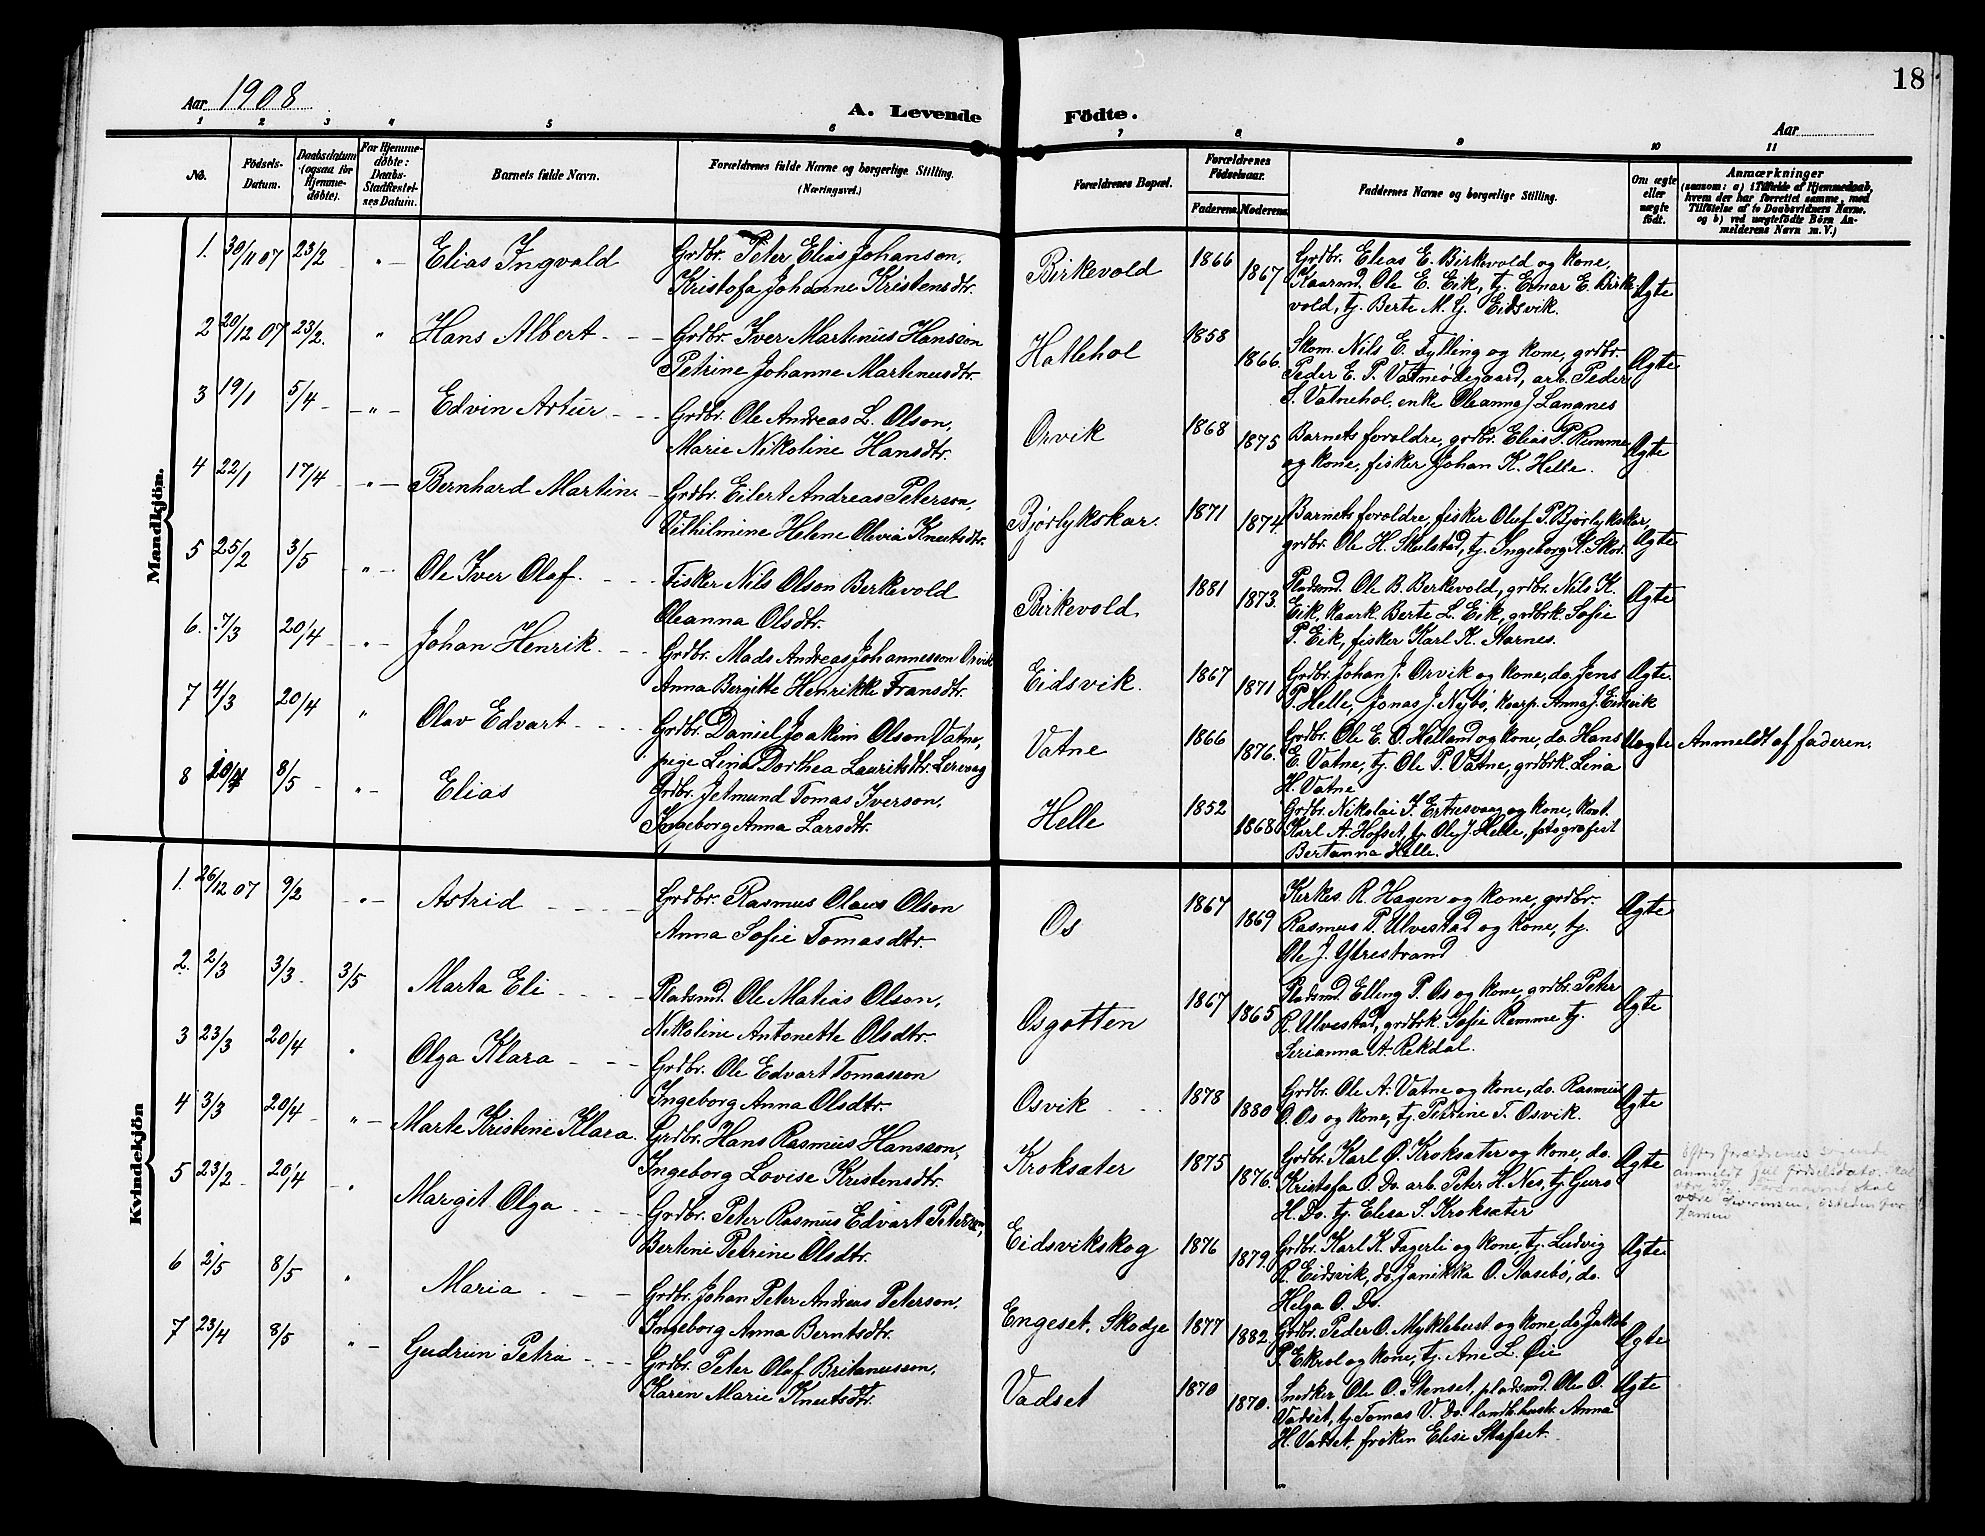 18
Aar 1908
A. Levende Födte.
Aar
1 2 3 4 5 6 7 8 9 10 11
No.
Födsels-Datum.
Daabsdatum (ogsaa for Hjemmedöbte).
For Hjemmedöbte: Daabs-Stadfæstelses Datum.
Barnets fulde Navn.
Forældrenes fulde Navne og borgerlige Stilling. (Næringsvei.)
Forældrenes Bopæl.
Forældrenes Födselsaar.
Faderens. Moderens.
Faddernes Navne og borgerlige Stilling.
Om ægte eller uægte födt.
Anmærkninger
(saasom: a) i Tilfælde af Hjemmedaab, hvem der har forrettet samme, med Tilföielse af to Daabsvidners Navne, og b) ved uægtefödte Börn Anmelderens Navn m. V.)
Mandkjön.
1. 30/11 07 23/2 - " - Elias Ingvald
Grdbr. Peter Elias Johanson,
Kristofa Johanne Kristensdtr.
Birkevold 1866 1867
Grdbr. Elias E. Birkevold og kone,
Kaarmd. Ole E. Eik, tj. Einar E. Birk-
vold, tj. Berte M. G. Eidsvik.
Ægte
2 20/12 07 23/2. " Hans Albert
Grdbr. Iver Martinus Hansson
Petrine Johanne Martinusdtr.
Hallehol 1858 1866.
Skom. Nils E. Fylling og kone, grdbr.
Peder E. P. Vatneødegaard, arb. Peder
S. Vatnehol, enke Oleanna J. Langnes
Ægte
3 19/1 5/4 - " - Edvin Artur
Grdbr. Ole Andreas L. Olson,
Marie Nikoline Hansdtr.
Orvik 1868 1875
Barnets foreldre, grdbr. Elias P. Remme
og kone, fisker Johan K. Helle.
Ægte
4 22/1 17/4 - " - Bernhard Martin
Grdbr. Eilert Andreas Peterson,
Vilhilmine Helene Olivia Knutsdtr.
Bjørlykskar. 1871 1874.
Barnets foreldre, fisker Oluf P. Bjørlykskar,
grdbr. Ole H. Skulstad, tj. Ingeborg K. Skor.
Ægte
5 25/2 3/5 - " - Ole Iver Olaf.
Fisker Nils Olson Berkevold
Oleanna Olsdtr.
Birkevold 1881 1873.
Pladsmd. Ole B. Berkevold, grdbr. Nils K.
Eik, kaark. Berte L. Eik, grdbrk. Sofie
P. Eik, fisker Karl K. Starnes.
Ægte
6. 7/3 20/4 - " - Johan Henrik
Grdbr. Mads Andreas Johannesson Orvik
Anna Bergitte Henrikke Fransdtr.
Eidsvik. 1867 1871
Grdbr. Johan J. Orvik og kone, do. Jens
P. Helle, Jonas J. Nybø, kaarp. Anna J. Eidsvik
Ægte.
7 4/3 20/4 " Olav Edvart
Grdbr. Daniel Joakim Olson Vatne,
pige Lina Dorthea Lauritsdtr. Lervaag
Vatne 1866 1876.
Grdbr. Ole E. O. Helland og kone, do. Hans
E. Vatne, tj. Ole P. Vatne, grdbrk. Lina
H. Vatne
Uægte Anmeldt af faderen.
8 20/4 8/5 - " - Elias
Grdbr. Jetmund Tomas Iverson,
Ingeborg Anna Larsdtr.
Helle 1852 1868
Grdbr. Nikolai I. Ertresvaag og kone,
Karl A. Hofset, tj. Ole J. Helle, fotografist
Bertanna Helle.
Kvindekjön
1. 26/12 07 9/2 - " - Astrid
Grdbr. Rasmus Olaus Olson
Anna Sofie Tomasdtr.
Os 1867 1869
Kirkes. R. Hagen og kone, grdbr.
Rasmus P. Ulvestad og kone, tj.
Ole J. Ytrestrand
Ægte
2. 2/3 3/3 3/5 Marta Eli
Pladsmd. Ole Matias Olson,
Nikoline Antonette Olsdtr.
Osgotten 1867 1865
Pladsmd. Elling P. Os og kone, grdbr. Peter
R. Ulvestad, grdbrk. Sofie Remme tj.
Serianna A. Rekdal.
Ægte
3 23/3 20/4 " Olga Klara
Grdbr. Ole Edvart Tomasson
Ingeborg Anna Olsdtr.
Osvik 1878 1880
Grdbr. Ole A. Vatne og kone, do. Rasmus
O. Os og kone, tj. Petrine T. Osvik.
Ægte
4 3/3 20/4 - " - Marte Kristine Klara.
Grdbr. Hans Rasmus Hansson,
Ingeborg Lovise Kristensdtr.
Kroksæter 1875 1876.
Grdbr. Karl O. Kroksæter og kone, do.
Kristofa O. Do. arb. Peter H. Nes, tj. Guro
H. Do. tj. Elisa S. Kroksæter
Ægte
5 23/2 20/4 " Margit Olga
Grdbr. Peter Rasmus Edvart Peterson,
Bertine Petrine Olsdtr.
Eidsvikskog 1876 1879.
Grdbr. Karl K. Fagerli og kone, tj. Ludvig
R. Eidsvik, do. Janikka O. Stasebø, do.
Helga O. Do.
Ægte
6 2/5 8/5 " Maria
Grdbr. Johan Peter Andreas Peterson,
Ingeborg Anna Berntsdtr.
Engeset, Skodje 1877 1882.
Grdbr. Peder O. Myklebust og kone, do Jakob
P. Ekrol og kone, tj. Ane L. Øie
Ægte
7 23/4 8/5 " - Gudrun Petra
Grdbr. Peter Olaf Britanusson,
Karen Marie Knutsdtr.
Vadset 1870 1870.
Snedker Ole O. Stenset, pladsmd. Ole O.
Vadset, tj. Tomas V. Do. landh.hustr. Anna
H. Vadset, frøken Elise Stafset.
Ægte